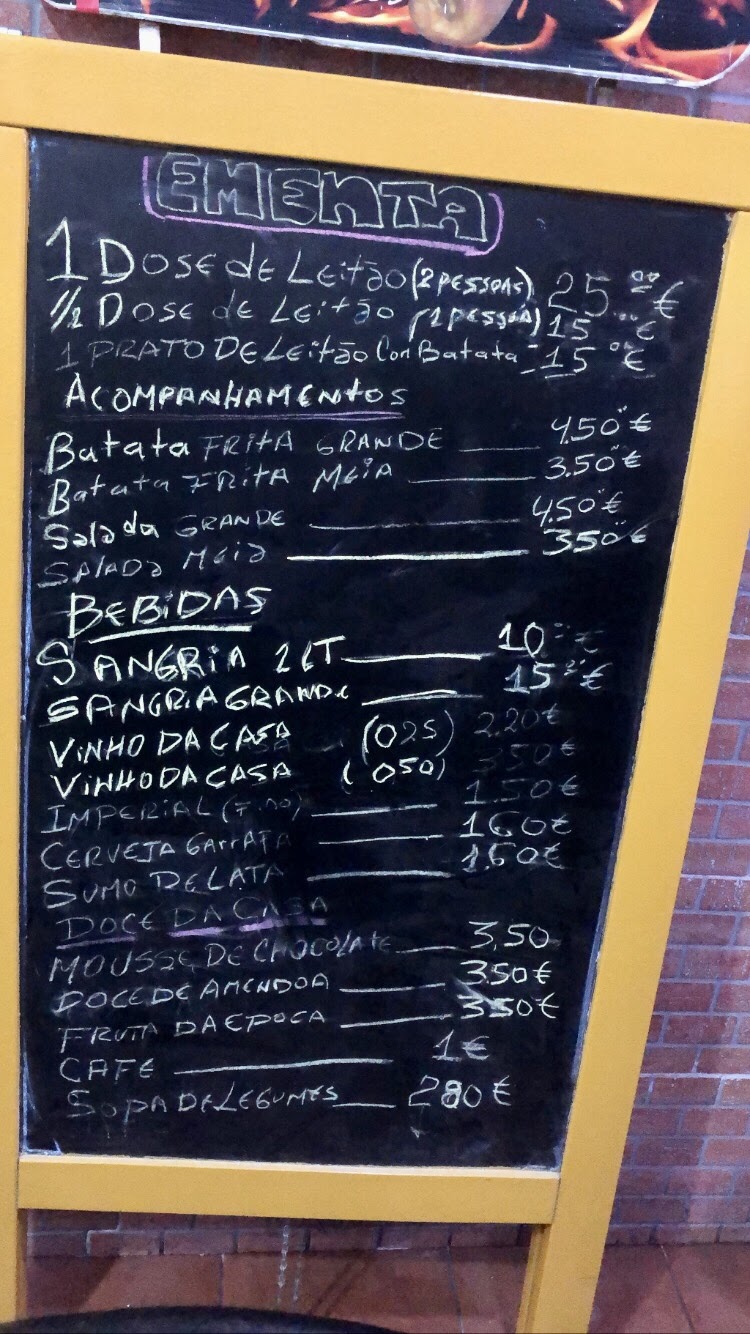 EMENTA
1 DOSE de Leitão (2 PESSOAS) 25 ⁰⁰ €
1/2 DOSE de Leitão (1 PESSOA) 15 ⁰⁰ €
1 PRATO DE Leitão Com Batata 15 ⁰⁰ €
ACOMPANHAMENTOS
Batata FRITA GRANDE 4.50 €
Batata FRITA MEIA 3.50 €
Salada GRANDE 4.50 €
SALADA MEIA 350 €
BEBIDAS
SANGRIA 1 LT 10 €
SANGRIA GRANDE 15 €
VINHO DA CASA (025) 2.20 €
VINHO DA CASA (050) 350 €
IMPERIAL 1.50 €
CERVEJA GARRAFA 160 €
SUMO DE LATA 1.60 €
DOCE DA CASA
MOUSSE DE CHOCOLATE 3.50
DOCE DE AMENDOA 3.50 €
FRUTA DA EPOCA 350 €
CAFE 1 €
SOPA DE LEGUMES €